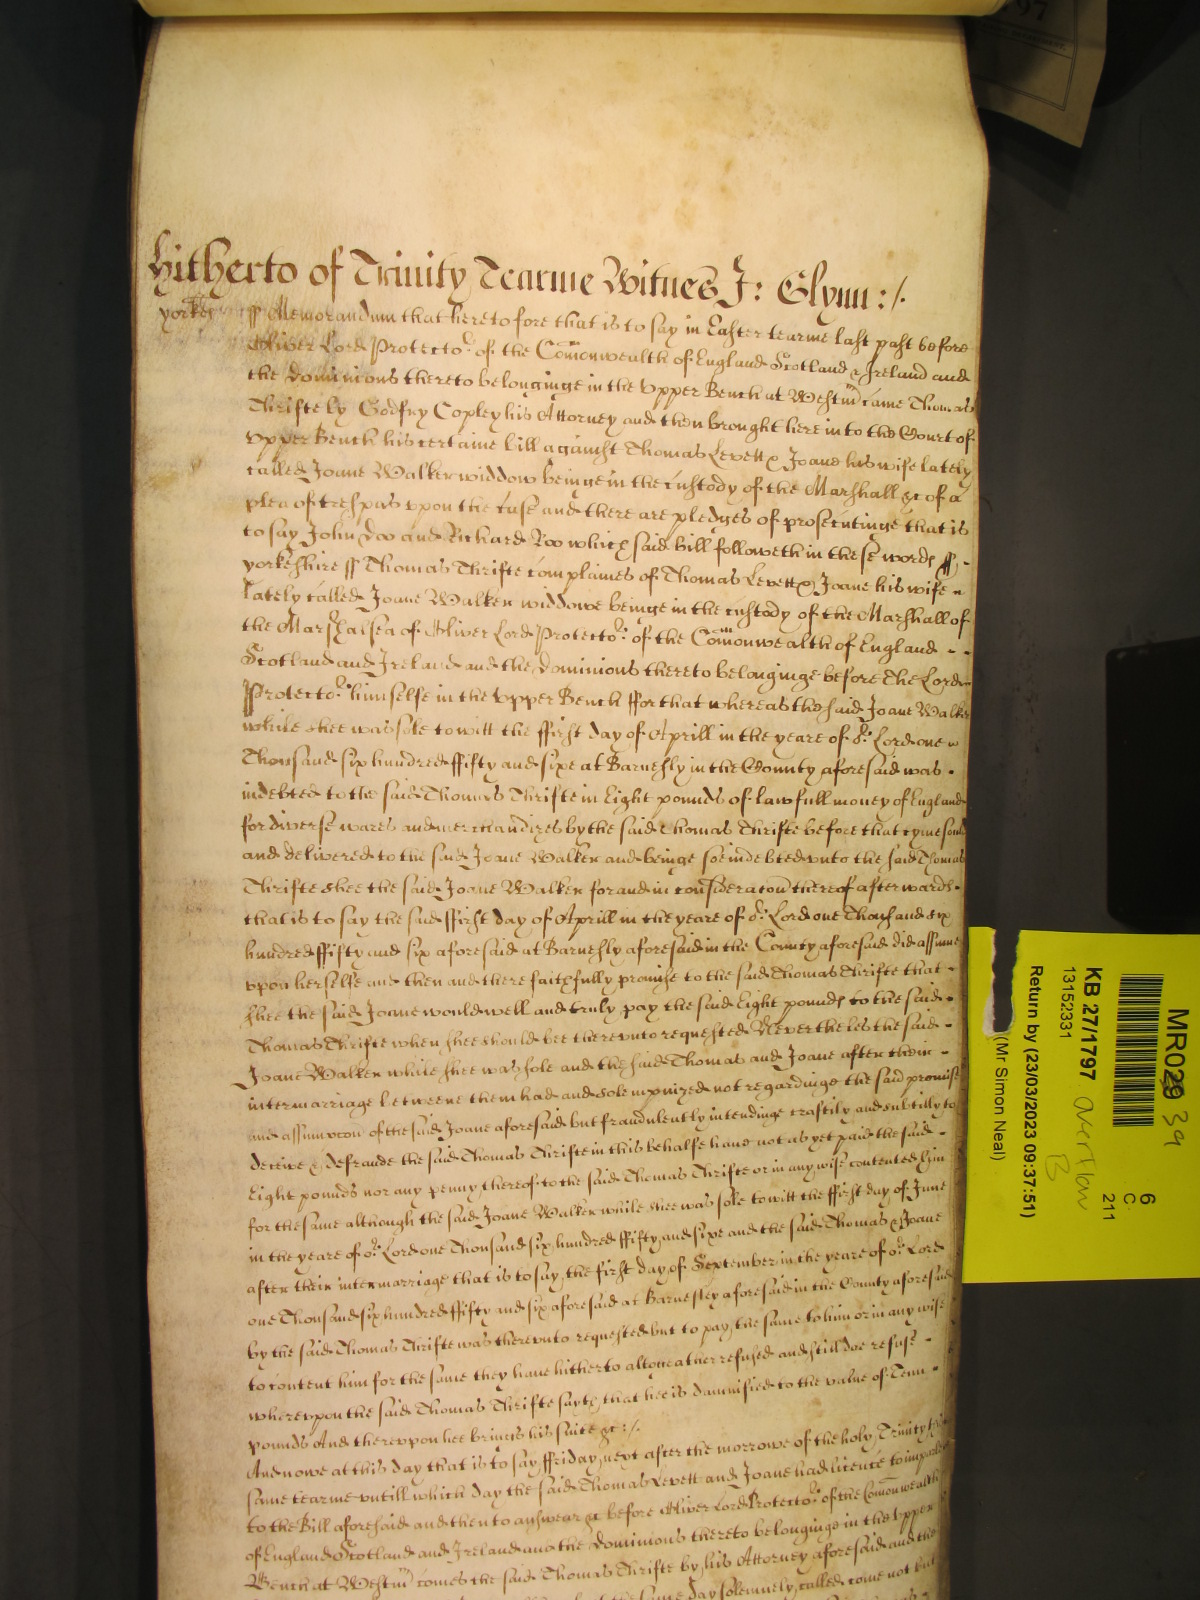 Hitherto of Trinity Tearme Witnes J: Glynn :/.
yorkes ss Memorandum that heretofore that is to say in Easter tearme last past before
Oliver Lord Protector of the Comonwealth of England Scotland & Ireland and
the dominions thereto belonginge in the Vpper Bench at Westm came Thomas
Thrifte by Godfry Copley his Attorney and then brought here into the Court of
Vpper Bench his certaine bill against Thomas Levett & Joane his wife lately
called Joane Walker widdow beinge in the custody of the Marshall &c of a
plea of trespas vpon the case and there are pledges of prosecutinge that is
to say John Doo and Richard Roo which said bill followeth in these words ss -
yorkeshire ss Thomas Thrifte complaines of Thomas Levett & Joane his wife
lately called Joane Walker widdowe beinge in the custody of the Marshall of
the Marshalsea of Oliver Lord Protector of the Comonwealth of England - -
Scotland and Ireland and the dominions thereto belonginge before the Lord
Protector himselfe in the Vpper Bench ffor that whereas the said Joane Walker
while shee was sole to witt the ffirst day of Aprill in the yeare of or Lord one
Thousand six hundred ffifty and sixe at Barnesly in the County aforesaid was -
indebted to the said Thomas Thrifte in Eight pounds of lawfull money of England
for diverse wares and merchandizes by the said Thomas Thrifte before that tyme sould
and delivered to the said Joane Walker and beinge soe indebted vnto the said Thomas
Thrifte shee the said Joane Walker for and in consideracon thereof afterwards -
that is to say the said ffirst day of Aprill in the yeare of or Lord one Thousand six
hundred ffifty and six aforesaid at Barnesly aforesaid in the County aforesaid did assume
vpon herselfe and then and there faithfully promise to the said Thomas Thrifte that -
shee the said Joane would well and truly pay the said Eight pounds to the said -
Thomas Thrifte when shee should bee therevnto requested Neverthelesthe said -
Joane Walker while shee was sole and the said Thomas and Joane after their -
intermarriage betweene them had and solempnized not regardinge the said promise
and assumpcon of the said Joane aforesaid but fraudulently intendinge craftily and subtilly to
deceive & defraude the said Thomas Thrifte in this behalfe haue not as yet paid the said -
Eight pounds nor any penny thereof to the said Thomas Thrifte or in any wise contented him
for the same although the said Joane Walker while shee was sole to witt the ffirst day of June
in the yeare of or Lord one Thousand six hundred ffifty and sixe and the said Thomas & Joane
after their intermarriage that is to say the first day of September in the yeare of or Lord
one Thousand six hundred ffifty and six aforesaid at Barnesley aforesaid in the County aforesaid
by the said Thomas Thrifte was therevnto requested but to pay the same to him or in any wise
to content him for the same they haue hitherto altogeather refused and still doe refuse -
wherevpon the said Thomas Thrifte sayth that hee is damnified to the value of Tenn -
pounds And therevpon hee brings his suite &c :/.
And nowe at this day that is to say ffriday next after the morrowe of the holy Trinity
same tearme vntill which day the said Thomas Levett and Joane had licence to imparle
to the Bill aforesaid and then to answear &c before Oliver Lord Protector of the Comonwealth
of England Scotland and Ireland and the Dominions thereto belonginge in the Vpper
Bench at Westm comes the said Thomas Thrifte by his Attorney aforesaid and the
same day solemnely called come not but
MR029 39
6
C
211
KB 27/1797 overflow
B
13152331
Return by (23/03/2023 09:37:51)
(Mr Simon Neal)
97